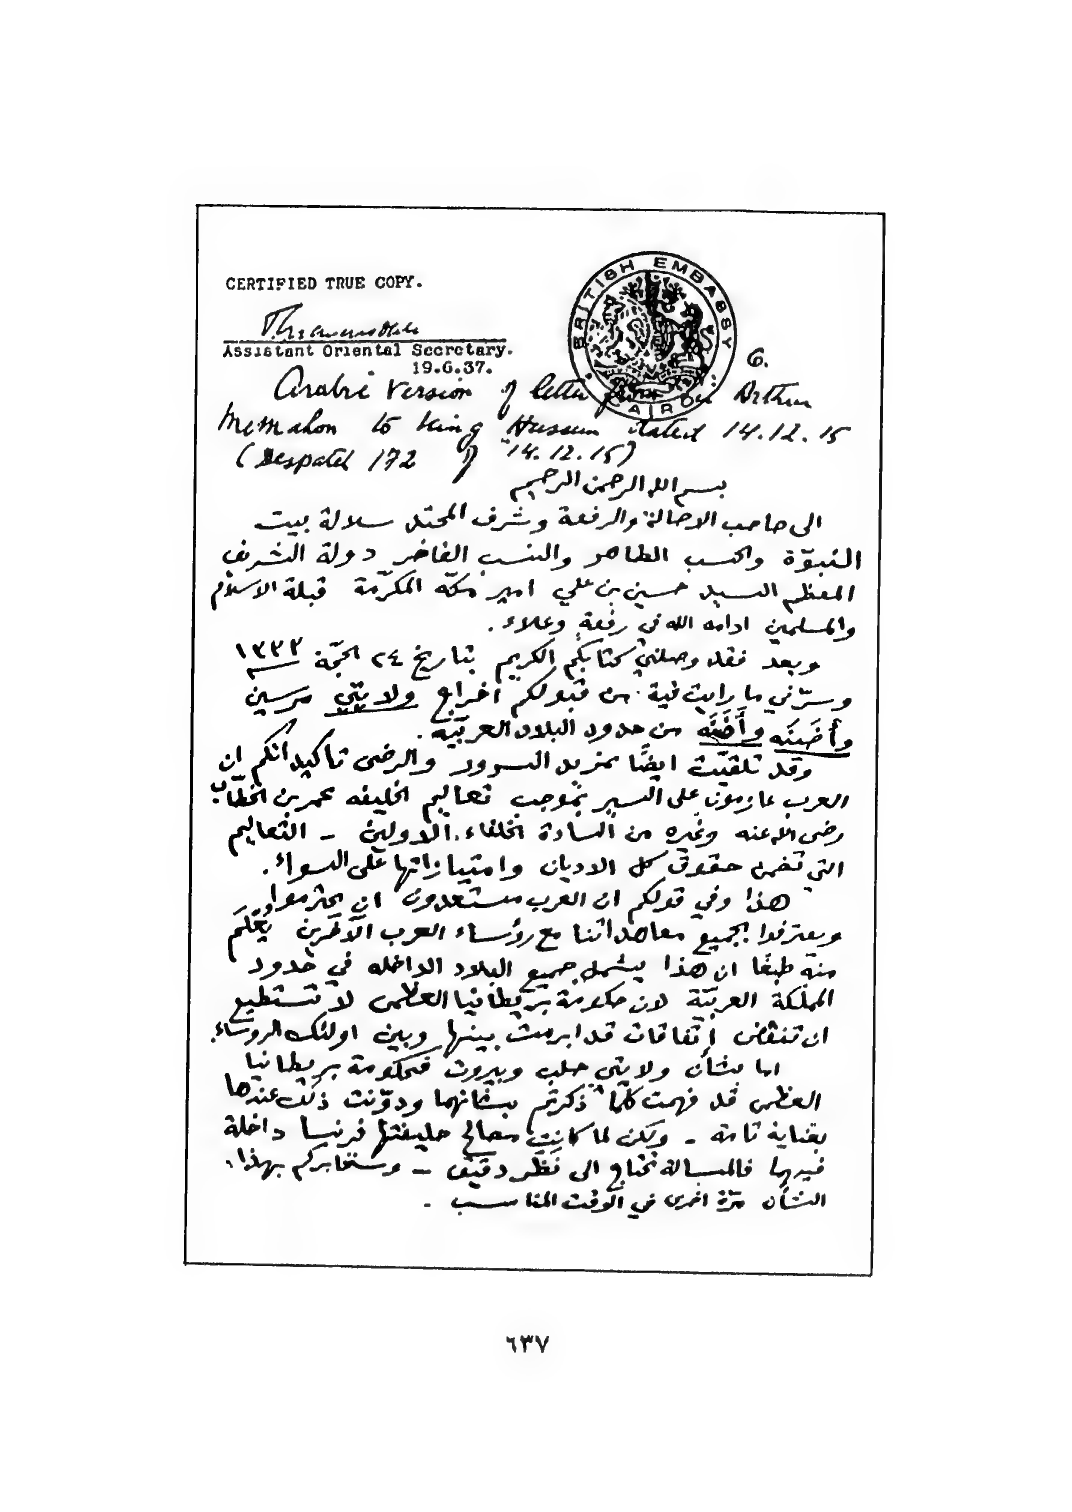 CERTIFIED TRUE COPY.
BRITISH EMBASSY
CAIRO
Assistant Oriental Secretary.
19.6.37.
6.
Arabic Version of letter from Sir Arthur
McMahon to King Hussein dated 14.12.15
(Despatch 172 of 14.12.15)
بسم الله الرحمن الرحيم
الى صاحب الاصالة والرفعة وشرف المحتد سلالة بيت
النبوّة والحسب الطاهر والنسب الفاخر دولة الشريف
المعظم السيد حسين بن علي امير مكّة المكرّمة قبلة الاسلام
والمسلمين ادامه الله في رفعة وعلاء.
وبعد فقد وصلني كتابكم الكريم بتاريخ ٢٤ الحجّة ١٣٣٣
وسرّني ما رايت فيه من قبولكم اخراج ولايتي مرسين
وأضَنَه من حدود البلاد العربيّة.
وقد تلقيّت ايضًا بمزيد السرور والرضى تاكيداتكم ان
العرب عازمون على السير بموجب تعاليم الخليفه عمر بن الخطّاب
رضى الله عنه وغيره من السادة الخلفاء الاولين – التعاليم
التي تضمن حقوق كل الاديان وامتيازاتها على السواء.
هذا وفي قولكم ان العرب مستعدون ان يحترموا
ويعترفوا بجميع معاهداتنا مع رؤساء العرب الآخرين يُعْلَم
منه طبعًا ان هذا يشمل جميع البلاد الداخله في حدود
المملكة العربيّة لان حكومة بريطانيا العظمى لا تستطيع
ان تنقض إتفاقات قد ابرمت بينها وبين اولئك الروساء.
اما بشأن ولايتي حلب وبيروت فحكومة بريطانيا
العظمى قد فهمت كلما ذكرتم بشانهما ودوّنت ذلك عندها
بعناية تامة – ولكن لما كانت مصالح حليفتها فرنسا داخلة
فيهما فالمسالة تحتاج الى نظر دقيق – وسنخابركم بهذا
الشأن مرّة اخرى في الوقت المناسب –
٦٣٧